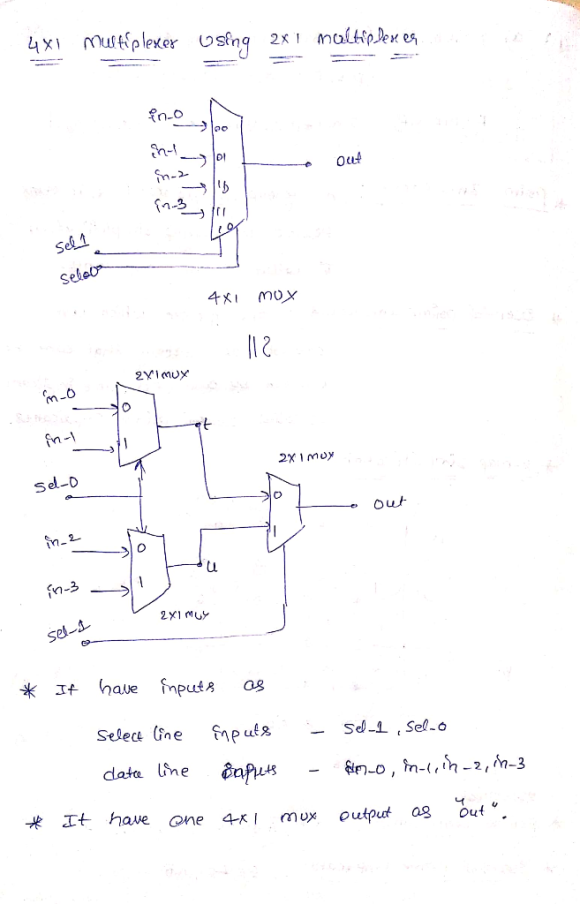 4x1 Multiplexer Using 2x1 multiplexer
in-0
00
in-1
01
out
in-2
10
in-3
11
1 0
sel 1
sel 0
4x1 mux
2x1 mux
in-0
0
t
in-1
1
2x1 mux
sel-0
0
out
in-2
0
1
u
in-3
1
2x1 mux
sel-1
* It have inputs as
Select line inputs - Sel-1, Sel-0
data line inputs - in-0, in-1, in-2, in-3
* It have one 4x1 mux output as "out".